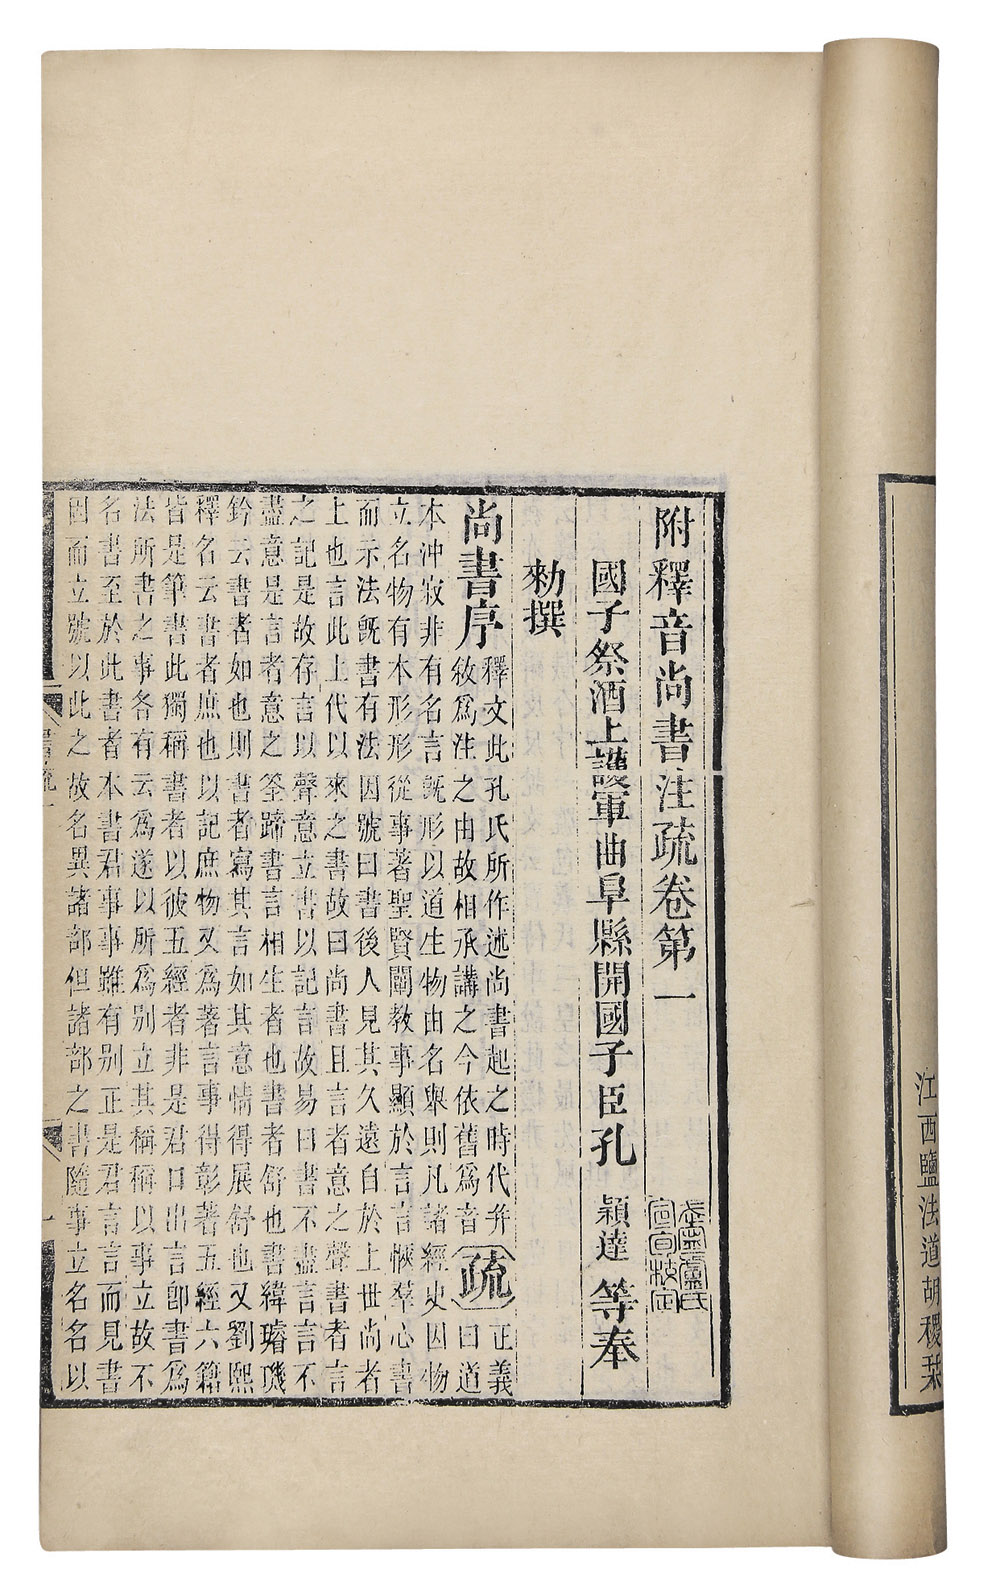 江西鹽法道胡稷栞
附釋音尚書注疏卷第一
國子祭酒上護軍曲阜縣開國子臣孔穎達等奉
勑撰
尚書序
釋文此孔氏所作述尚書起之時代并
敘爲注之由故相承講之今依舊爲音
疏
正義
曰道
本沖寂非有名言既形以道生物由名舉則凡諸經史因物
立名物有本形形從事著聖賢闡教事顯於言言愜羣心書
而示法既書有法因號曰書後人見其久遠自於上世尚者
上也言此上代以來之書故曰尚書且言者意之聲書者言
之記是故存言以聲意立書以記言故易曰書不盡言言不
盡意是言者意之筌蹄書言相生者也書者舒也書緯璿璣
鈐云書者如也則書者寫其言如其意情得展舒也又劉熙
釋名云書者庶也以記庶物又爲著言事得彰著五經六籍
皆是筆書此獨稱書者以彼五經者非是君口出言卽書爲
法所書之事各有云爲遂以所爲别立其稱稱以事立故不
名書至於此書者本書君事事雖有别正是君言言而見書
因而立號以此之故名異諸部但諸部之書隨事立名名以
書疏一
一